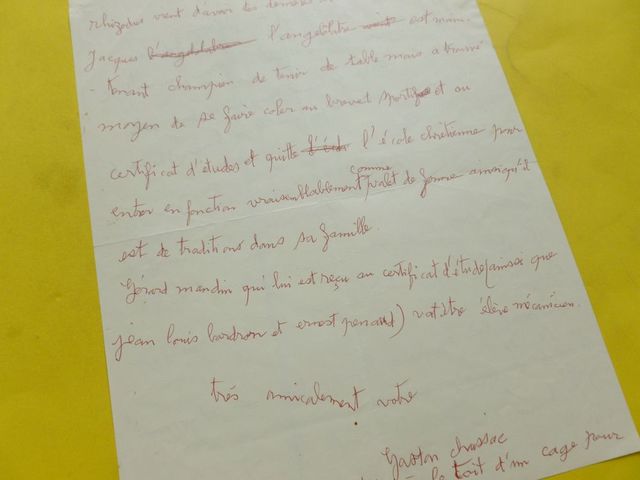 vient d'avoir les
Jacques l'angélibre est main
tenant champion de tenir de table mais a trouvé
moyen de se faire coler au brevet sportif et au
certificat d'études et quitte l'école chrétienne pour
entrer en fonction vraisemblablement comme valet de ferme ainsi qu'il
est de traditions dans sa famille.
Gérard mandin qui lui est reçu au certificat d'étude (ainsi que
jean louis bardron et ernest penaud) va être élève mécanicien.
très amicalement votre
Gaston chaissac
le toit d'un cage pour